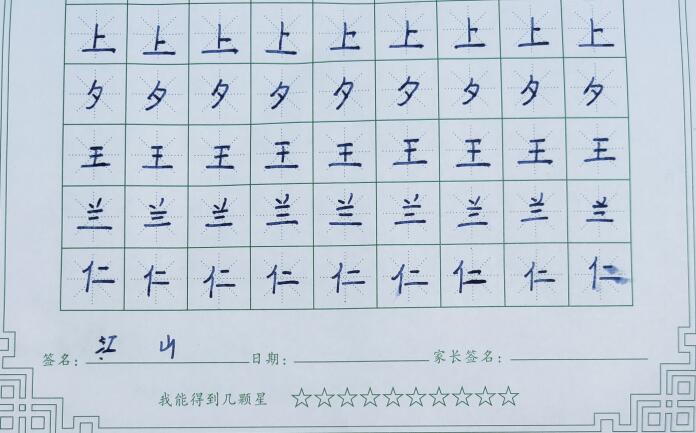 上上上上上上上上上
夕夕夕夕夕夕夕夕夕
王王王王王王王王王
兰兰兰兰兰兰兰兰兰
仁仁仁仁仁仁仁仁仁
签名：江 山 日期： 家长签名：
我能得到几颗星 ☆☆☆☆☆☆☆☆☆☆